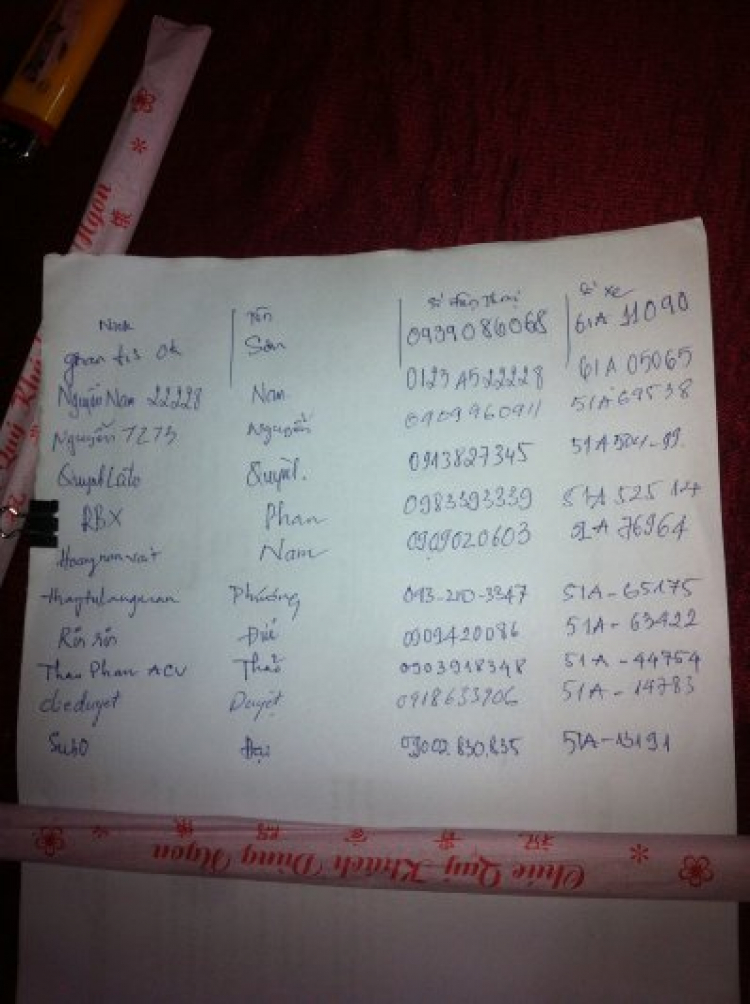 Nick Tên Số điện thoại Số xe
Sơn 0939086068 61A 11090
Nguyễn Nam 22228 Nam 0123 A522228 61A 05065
Nguyễn 7273 Nguyễn 0909960911 51A 69538
Quyết Lato Quyết. 0913827345 51A 504-99.
RBX Phan 0983393339 51A 525 14
Nam 0909020603 76964
Phương 093-210-3347 51A-65175
Rôn rôn Đức 0909420086 51A-63422
Thao Phan ACV Thảo 0903918348 51A-44754
dieduyet Duyệt 0918633906 51A-14783
Su30 Đại 51A-13191
Chúc Quý Khách Dùng Ngon
Ngon
Quý